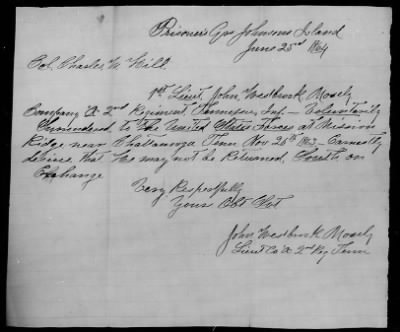 Prisoners Qrs Johnsons Island
June 23d 1864
Col. Charles W. Hill
1st Lieut John Westbrook Mosely
Company "A" 2nd Regiment, Tennessee Inf — Voluntarily
Surrendered to the United States Forces at Mission
Ridge near Chattanooga Tenn Nov 25th 1863 — Earnestly
desires that he may not be returned South on
Exchange
Very Respectfully
Your Obt Svt
John Westbrook Mosely
Lieut Co "A" 2nd Reg Tenn